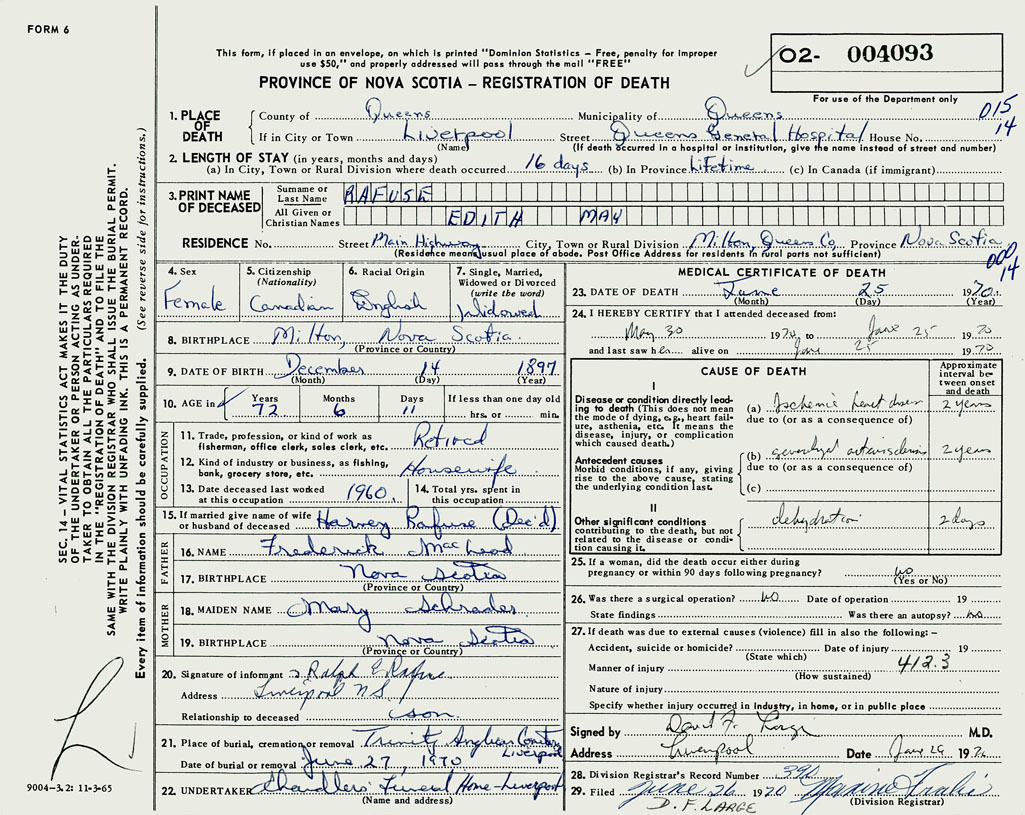 FORM 6
This form, if placed in an envelope, on which is printed "Dominion Statistics – Free, penalty for improper
use $50," and properly addressed will pass through the mail "FREE"
PROVINCE OF NOVA SCOTIA – REGISTRATION OF DEATH
02- 004093
For use of the Department only
015
14
1. PLACE OF DEATH
County of Queens Municipality of Queens
If in City or Town Liverpool Street Queens General Hospital House No.
(Name) (If death occurred in a hospital or institution, give the name instead of street and number)
2. LENGTH OF STAY (in years, months and days)
(a) In City, Town or Rural Division where death occurred 16 days (b) In Province Lifetime (c) In Canada (if immigrant)
3. PRINT NAME OF DECEASED
Surname or Last Name RAFUSE
All Given or Christian Names EDITH MAY
RESIDENCE No. Street Main Highway City, Town or Rural Division Milton, Queens Co. Province Nova Scotia
(Residence means usual place of abode. Post Office Address for residents in rural parts not sufficient)
000
14
4. Sex
Female
5. Citizenship
(Nationality)
Canadian
6. Racial Origin
English
7. Single, Married,
Widowed or Divorced
(write the word)
Widowed
8. BIRTHPLACE Milton, Nova Scotia
(Province or Country)
9. DATE OF BIRTH December 14 1897
(Month) (Day) (Year)
10. AGE in Years Months Days If less than one day old
72 6 11 hrs. or min.
OCCUPATION
11. Trade, profession, or kind of work as
fisherman, office clerk, sales clerk, etc. Retired
12. Kind of industry or business, as fishing,
bank, grocery store, etc. Housewife
13. Date deceased last worked
at this occupation 1960.
14. Total yrs. spent in
this occupation
15. If married give name of wife
or husband of deceased Harvey Rafuse (Dec'd)
FATHER
16. NAME Frederick MacLeod
17. BIRTHPLACE Nova Scotia
(Province or Country)
MOTHER
18. MAIDEN NAME Mary Schrader
19. BIRTHPLACE Nova Scotia
(Province or Country)
20. Signature of informant Ralph E. Rafuse
Address Liverpool NS
Relationship to deceased son.
21. Place of burial, cremation or removal Trinity Anglican Cemetery
Liverpool
Date of burial or removal June 27, 1970
22. UNDERTAKER Chandlers' Funeral Home-Liverpool
(Name and address)
MEDICAL CERTIFICATE OF DEATH
23. DATE OF DEATH June 25 1970.
(Month) (Day) (Year)
24. I HEREBY CERTIFY that I attended deceased from:
May 30 1970 to June 25 1970
and last saw her alive on June 25 1970
CAUSE OF DEATH
Approximate
interval be-
tween onset
and death
I
Disease or condition directly lead-
ing to death (This does not mean
the mode of dying, e.g., heart fail-
ure, asthenia, etc. It means the
disease, injury, or complication
which caused death.)
(a) Ischemic heart disease 2 years
due to (or as a consequence of)
Antecedent causes
Morbid conditions, if any, giving
rise to the above cause, stating
the underlying condition last.
(b) generalized arteriosclerosis 2 years
due to (or as a consequence of)
(c)
II
Other significant conditions
contributing to the death, but not
related to the disease or condi-
tion causing it.
dehydration 2 days
25. If a woman, did the death occur either during
pregnancy or within 90 days following pregnancy? no
(Yes or No)
26. Was there a surgical operation? no Date of operation 19
State findings Was there an autopsy? no
27. If death was due to external causes (violence) fill in also the following: –
Accident, suicide or homicide? Date of injury 19
(State which)
412.3
Manner of injury
(How sustained)
Nature of injury
Specify whether injury occurred in industry, in home, or in public place
Signed by David F. Large M.D.
Address Liverpool Date June 29 1970
28. Division Registrar's Record Number
29. Filed June 26 1970
(Division Registrar)
D.F. LARGE
SEC. 14 – VITAL STATISTICS ACT MAKES IT THE DUTY
OF THE UNDERTAKER OR PERSON ACTING AS UNDER-
TAKER TO OBTAIN ALL THE PARTICULARS REQUIRED
IN THE "REGISTRATION OF DEATH" AND TO FILE THE
SAME WITH THE DIVISION REGISTRAR WHO SHALL ISSUE THE BURIAL PERMIT.
WRITE PLAINLY WITH UNFADING INK. THIS IS A PERMANENT RECORD.
Every item of information should be carefully supplied. (See reverse side for instructions.)
9004-3.2: 11-3-65